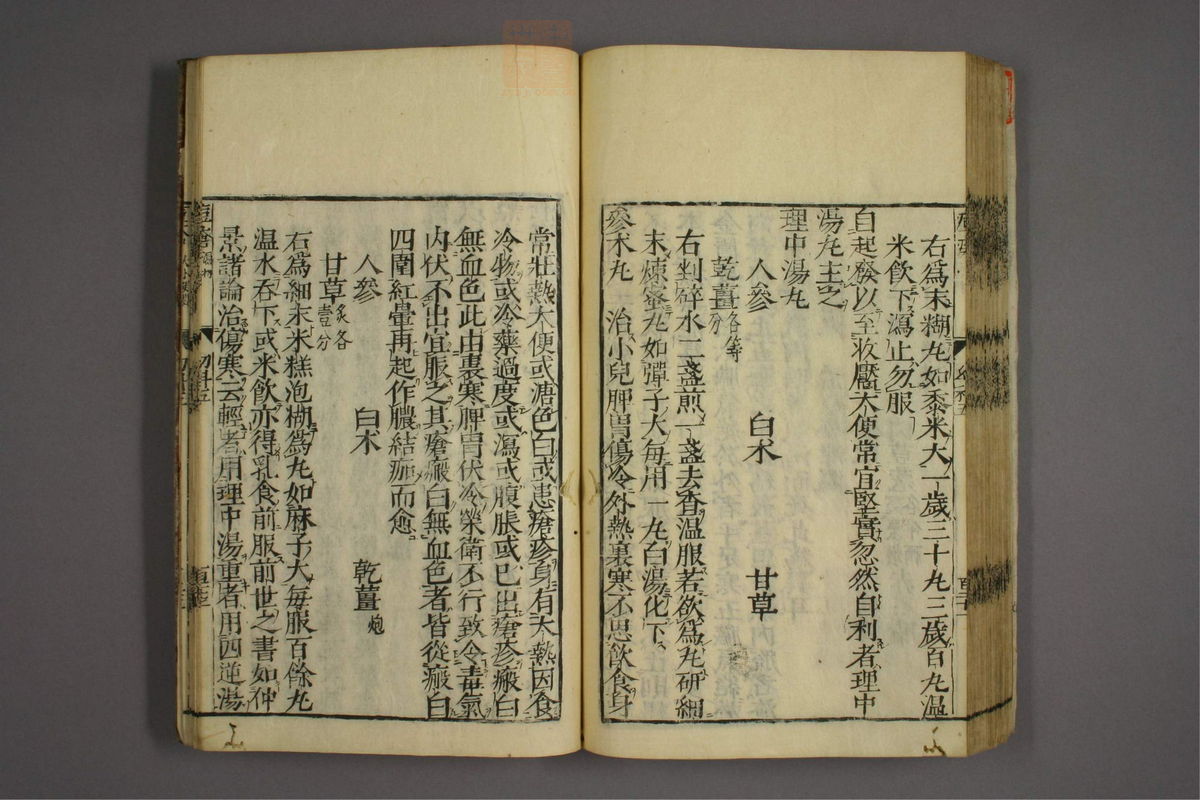 右為末糊丸如黍米大一歲三十丸三歲百丸溫
米飲下瀉止勿服
自起發以至收靨大便常宜堅實忽然自利者理中
湯丸主之
理中湯丸
人參 白朮 甘草
乾薑各等分
右剉碎水二盞煎一盞去查溫服若欲為丸研細
末煉蜜丸如彈子大每用一丸白湯化下
參朮丸 治小兒脾胃傷冷外熱裏寒不思飲食身
常壯熱大便或溏色白或患瘡疹身有大熱因食
冷物或冷藥過度或瀉或腹脹或已出瘡疹瘢白
無血色此由裏寒脾胃伏冷榮衛不行致令毒氣
內伏不出宜服之其瘡瘢白無血色者皆從瘢白
四圍紅暈再起作膿結痂而愈
人參 白朮 乾薑炮
甘草炙各壹分
右為細末米糕泡糊為丸如麻子大每服百餘丸
溫水吞下或米飲亦得乳食前服前世之書如仲
景諸論治傷寒云輕者用理中湯重者用四逆湯